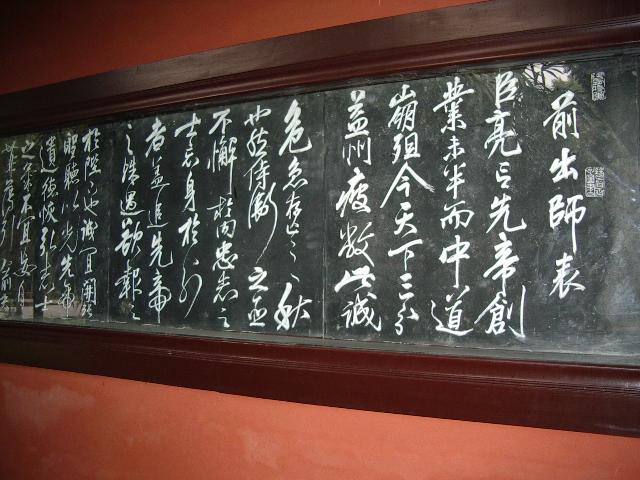 前出師表
臣亮言先帝創
業未半而中道
崩殂今天下三分
益州疲敝此誠
危急存亡之秋
也然侍衛之臣
不懈於內忠志之
士忘身於外
者蓋追先帝
之殊遇欲報之
於陛下也誠宜開張
聖聽以光先帝
遺德恢弘志士
之氣不宜妄自
菲薄引喻